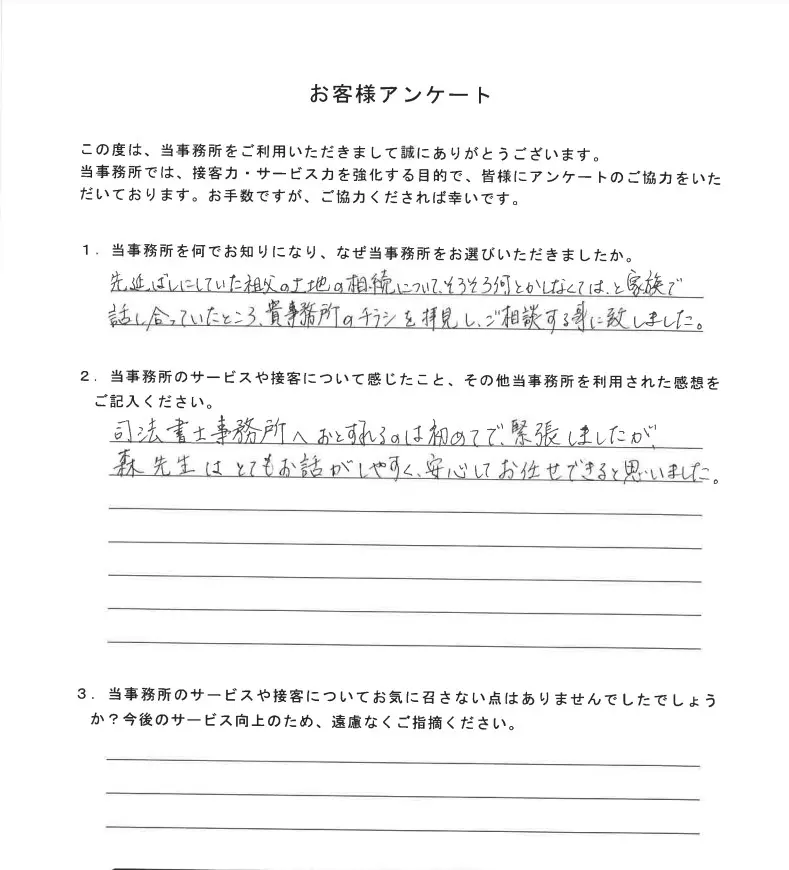 お客様アンケート
この度は、当事務所をご利用いただきまして誠にありがとうございます。
当事務所では、接客力・サービス力を強化する目的で、皆様にアンケートのご協力をいた
だいております。お手数ですが、ご協力くだされば幸いです。
１．当事務所を何でお知りになり、なぜ当事務所をお選びいただきましたか。
先延ばしにしていた祖父の土地の相続について、そろそろ何とかしなくては、と家族で
話し合っていたところ、貴事務所のチラシを拝見し、ご相談する事に致しました。
２．当事務所のサービスや接客について感じたこと、その他当事務所を利用された感想を
ご記入ください。
司法書士事務所へおとずれるのは初めてで、緊張しましたが、
森先生はとてもお話がしやすく、安心してお任せできると思いました。
３．当事務所のサービスや接客についてお気に召さない点はありませんでしたでしょう
か？今後のサービス向上のため、遠慮なくご指摘ください。